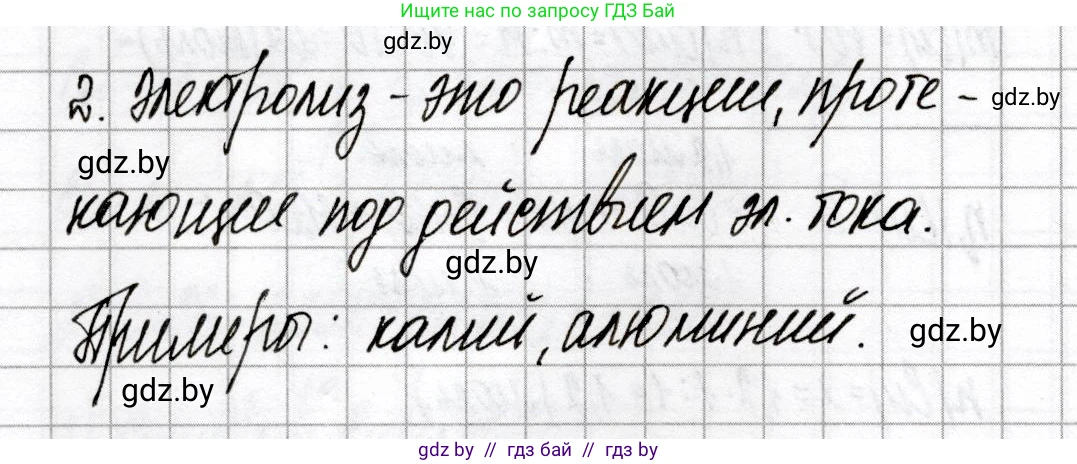 Ищите нас по запросу ГДЗ Бай
gdz.by
2. Электролиз - это реакции, проте - gdz.by
gdz.by
кающие под действием эл. тока.
gdz.by
Примеры: калий, алюминий. gdz.by
gdz.by
gdz.by // гдз бай // gdz.by